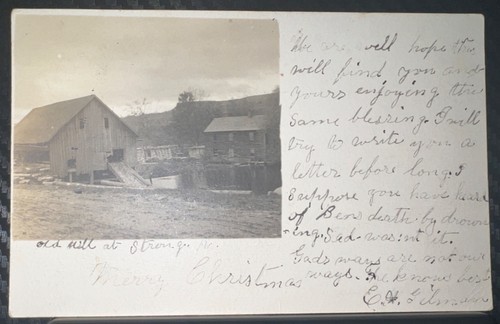 We are well hope this
will find you and
yours enjoying the
same blessing. I will
try to write you a
letter before long. I
suppose you have heard
of Bens death. by drown
ing. Sad. was:nt it.
Gods ways are not our
ways. He knows best
E. H. Gilman
old mill at Strong. Me.
Merry Christmas